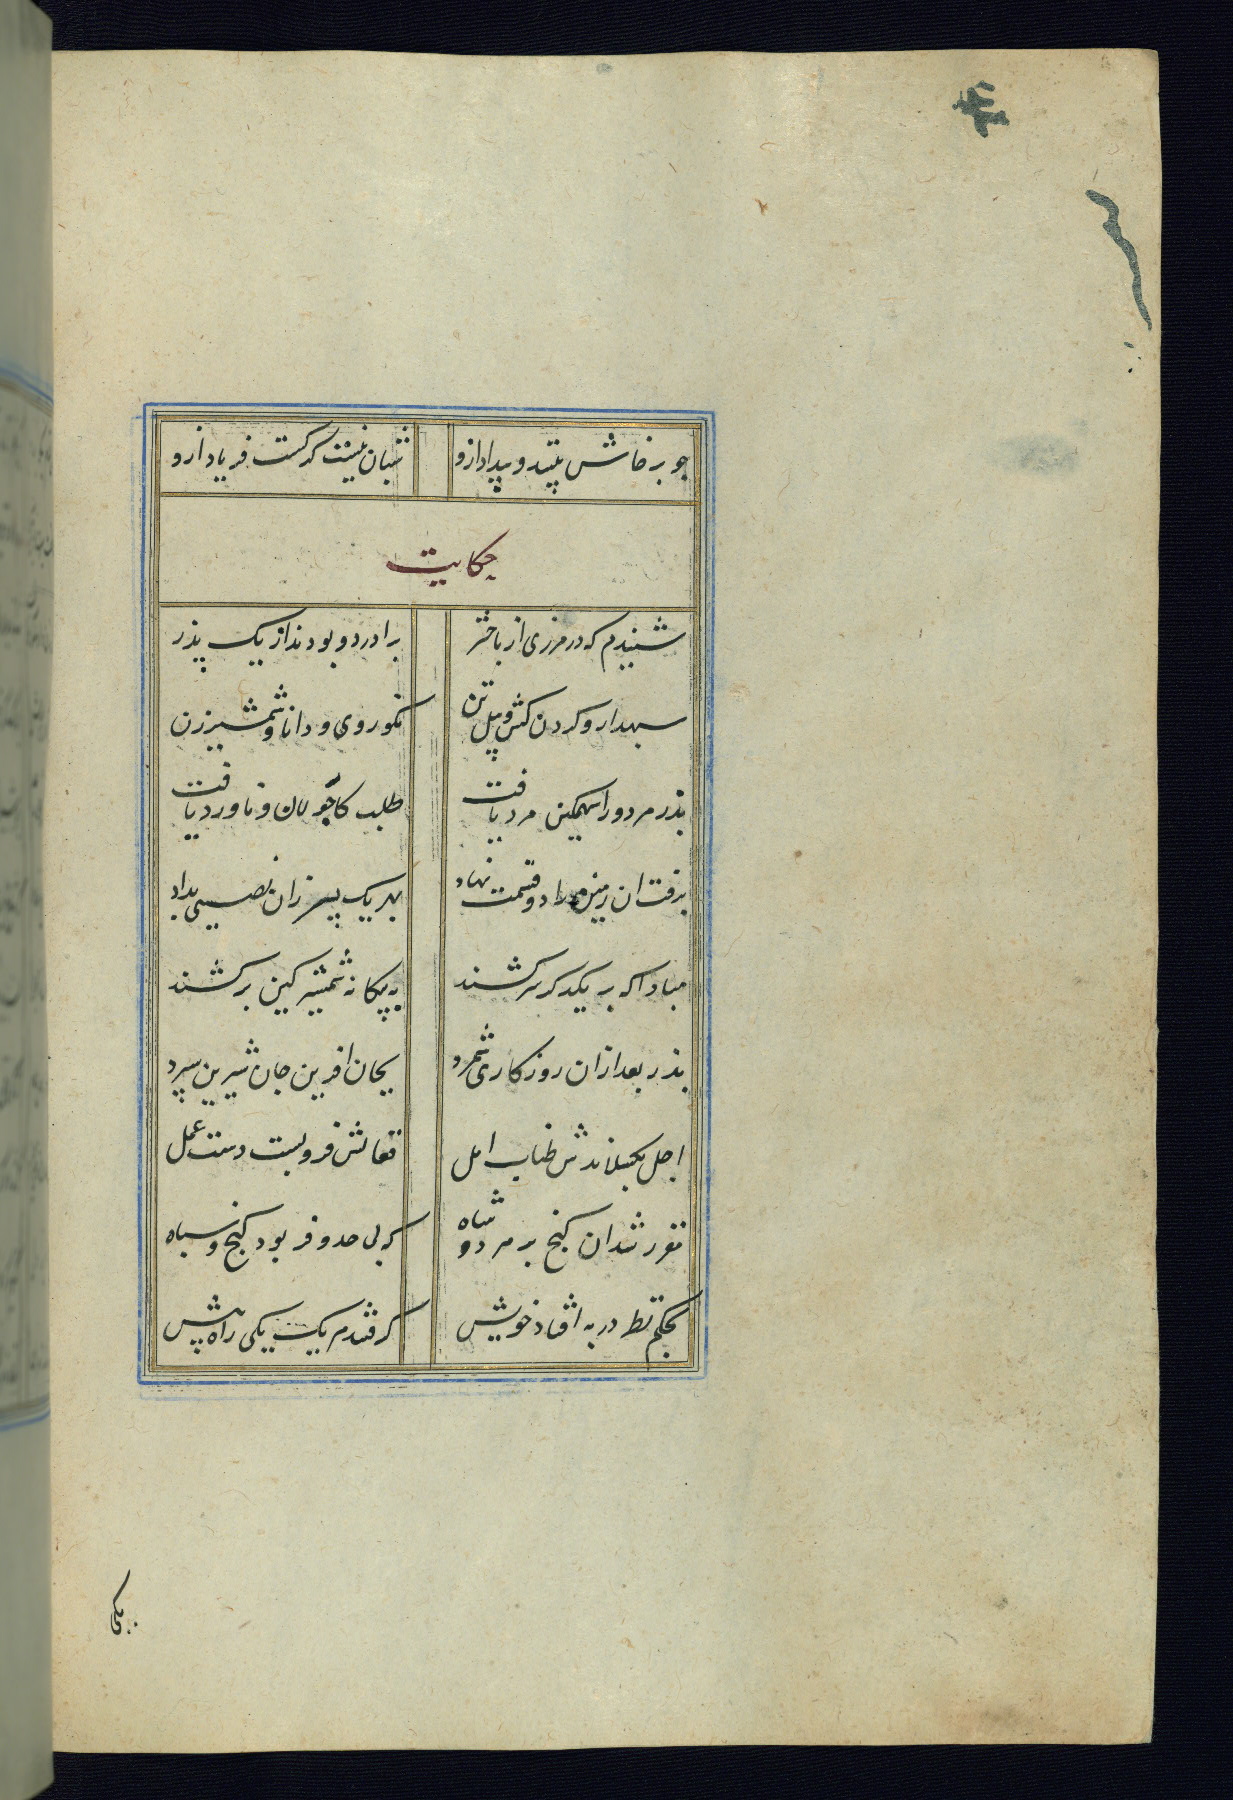 چو پرخاش بینند و بیداد ازو شبان نیست گرگست فریاد ازو
حکایت
شنیدم که در مرزی از باختر برادر دو بودند از یک پذر
سپهدار و کردن کش و پیل تن نکو روی و دانا و شمشیر زن
پذر هر دو را سهمکین مرد یافت طلبکار جولان و ناورد یافت
برفت ان زمین را دو قسمت نهاد بهر یک پسر زان نصیبی بداد
مبادا که بر یکدکر سر کشند به پیکار شمشیر کین بر کشند
پذر بعد ازان روزکاری شمرد بجان افرین جان شیرین سپرد
اجل بکسلاندش طناب امل وفاتش فرو بست دست عمل
مقرر شد ان کنج بر هر دو شاه که بی حد و مر بود کنج و سپاه
بحکم نظر در به افتاد خویش کرفتند هر یک یکی راه پیش
یکی